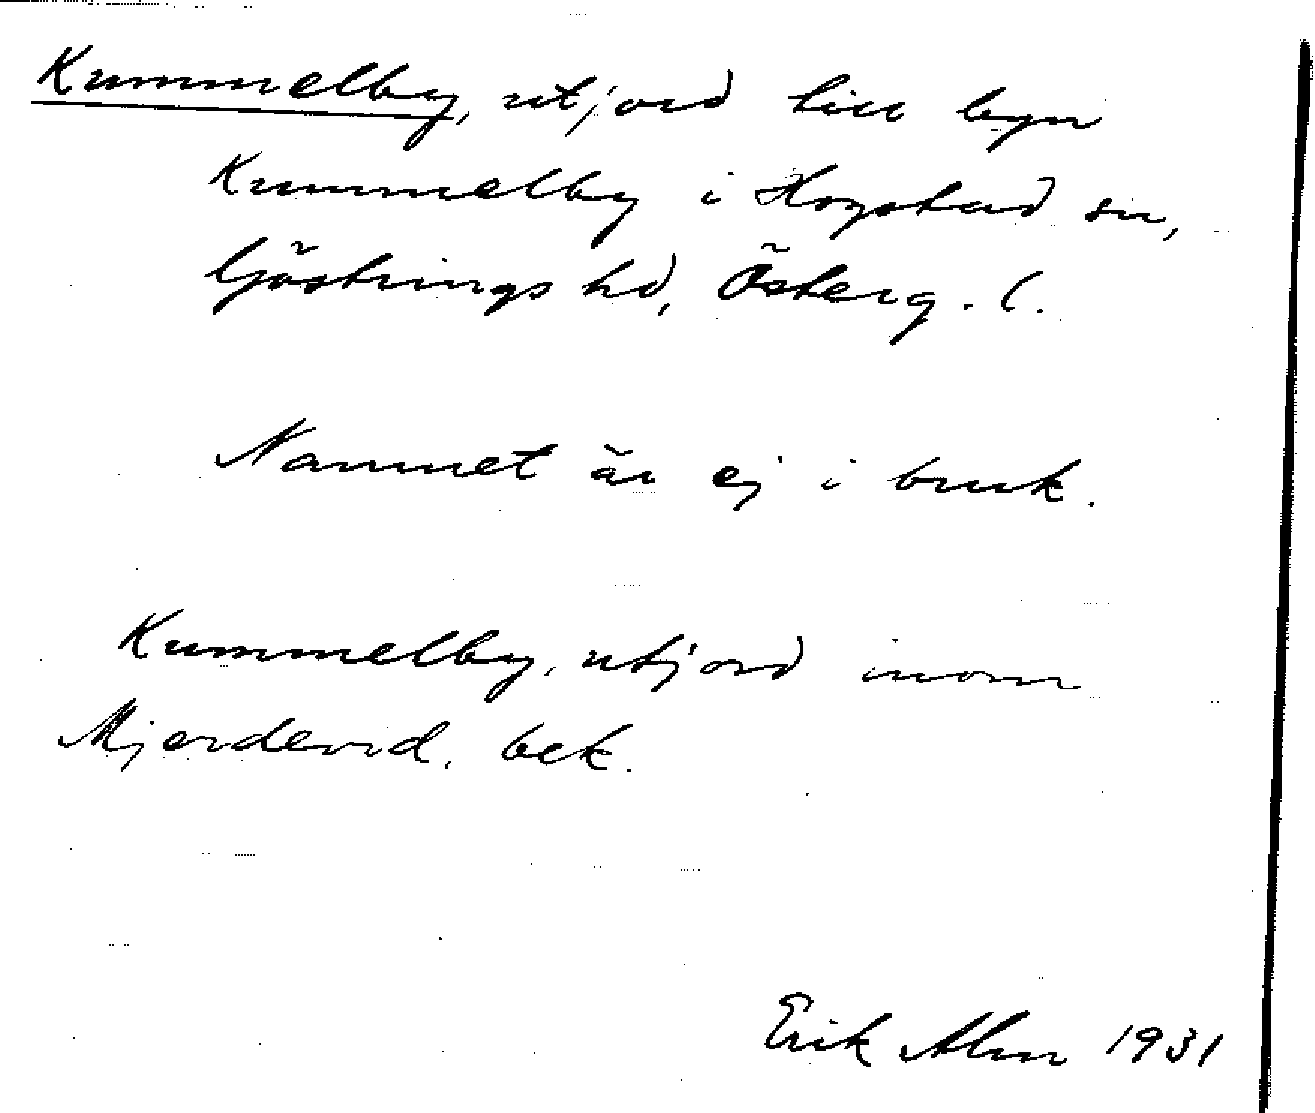 Kummelby, utjord till byn
Kummelby i Hogstad sn,
Göstrings hd, Österg. l.
Namnet är ej i bruk.
Kummelby, utjord inom
Mjerdevid. bek.
Erik Alm 1931